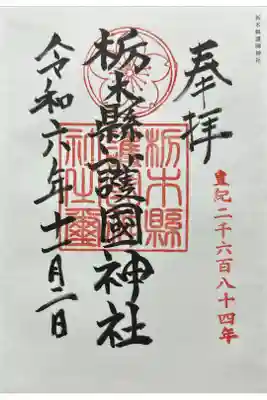 栃木縣護國神社
奉拝
皇紀二千六百八十四年
栃木縣護國神社
令和六年十一月二日
栃木縣
護國
神社璽